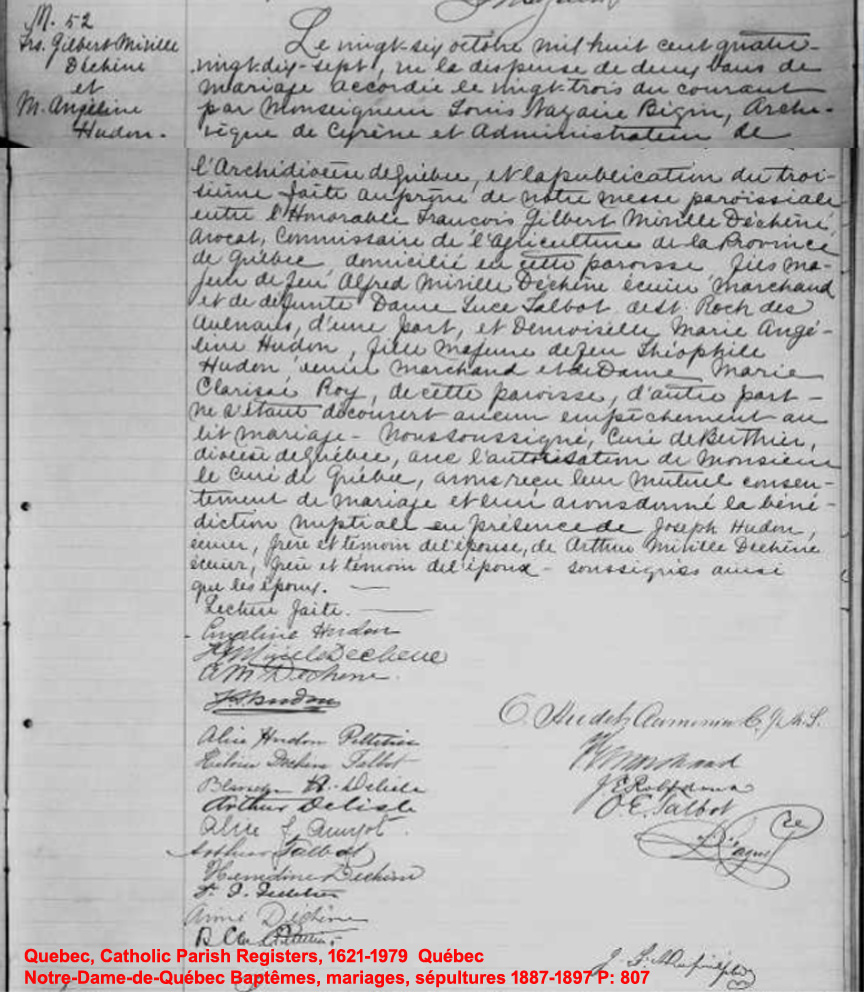 M. 52
Frs. Gilbert Miville
Déchêne
et
M. Angéline
Hudon.
Le vingt-six octobre mil huit cent quatre-
vingt-dix-sept, vu la dispense de deux bans de
mariage accordée le vingt trois du courant
par Monseigneur Louis Nazaire Bégin, Arche-
vêque de Cyrène et Administrateur de
l'Archidiocèse de Québec, et la publication du troi-
sième faite au prône de notre messe paroissiale
entre l'Honorable François Gilbert Miville Déchêne,
Avocat, Commissaire de l'agriculture de la Province
de Québec, domicilié en cette paroisse, fils ma-
jeur de feu Alfred Miville Déchêne écuier marchand
et de defunte Dame Luce Talbot, de St. Roch des
Aulnaies, d'une part, et Demoiselle Marie Angé-
line Hudon, fille majeure de feu Théophile
Hudon écuier marchand et de Dame Marie
Clarisse Roy, de cette paroisse, d'autre part -
ne s'étant découvert aucun empêchement au
dit mariage - Nous soussigné, Curé de Berthier,
diocèse de Québec, avec l'autorisation de Monsieur
le Curé de Québec, avons reçu leur mutuel consen-
tement de mariage et leur avons donné la béné-
diction nuptiale en présence de Joseph Hudon,
écuier, frère et témoin de l'épouse, de Arthur Miville Dechêne
écuier, frère et témoin de l'époux - soussignés ainsi
que les époux.
Lecture faite.
Hudon
Miville Dechene
A M Dechene
Hudon
Alice Hudon Pelletier
Dechene Talbot
H. Delisle
Arthur Delisle
Alice
Arthur Talbot
Dechene
Pelletier
Aimé Dechêne
Pelletier
O.
Marchand
J. E.
O. E. Talbot
Quebec, Catholic Parish Registers, 1621-1979 Québec
Notre-Dame-de-Québec Baptêmes, mariages, sépultures 1887-1897 P: 807